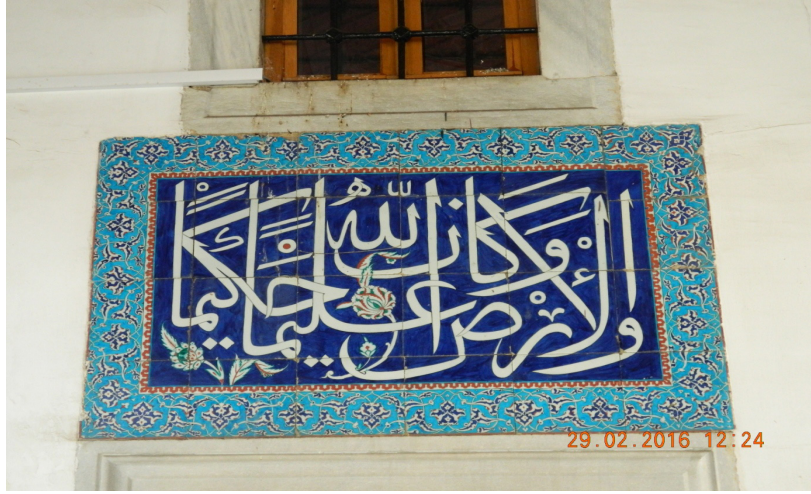 والأرض وكان الله عليما حكيما
29.02.2016 12:24